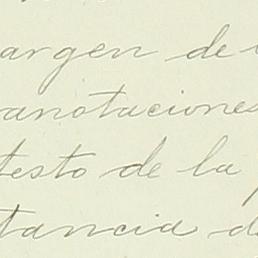 argen de
anotaciones
testo de la
tancia d